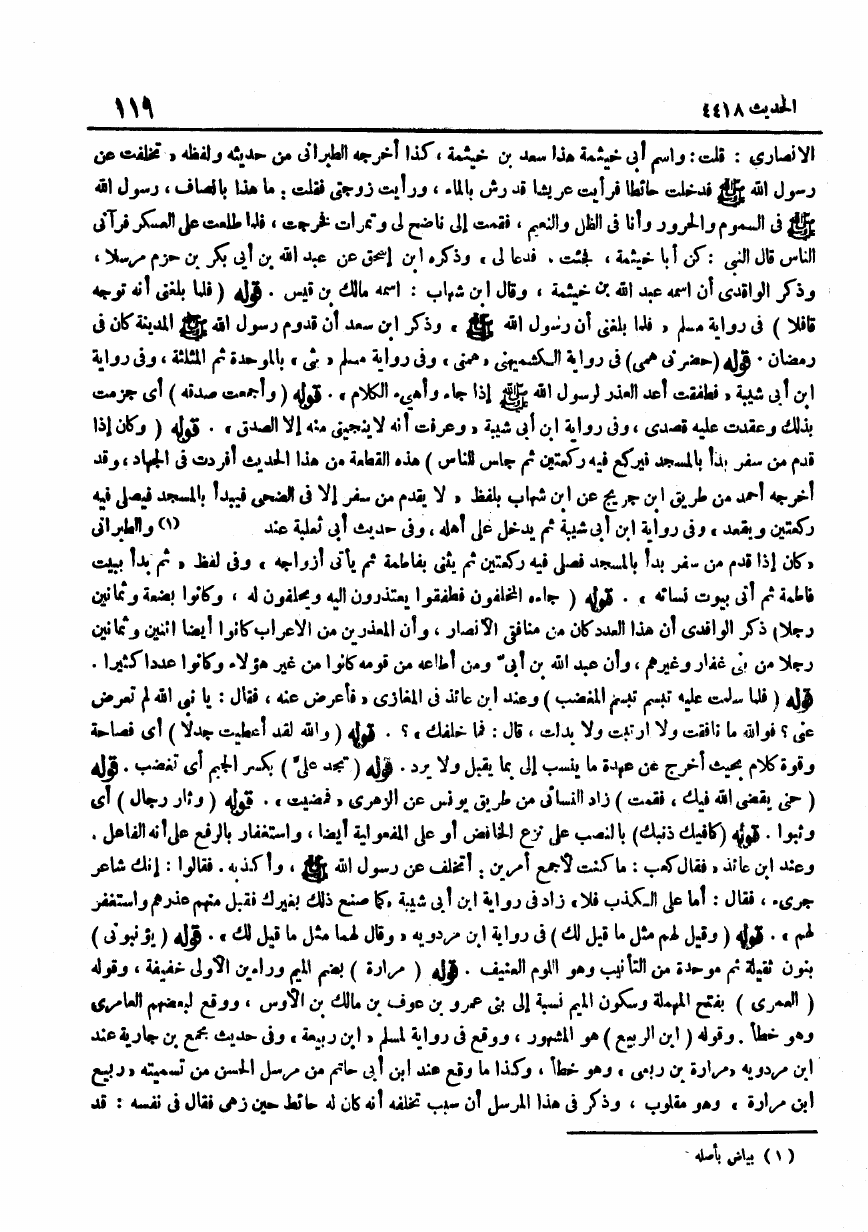 الحديث ٤٤١٨ ١١٩
الانصاري : قلت : واسم أبى خيثمة هذا سعد بن خيثمة ، كذا أخرجه الطبرانى من حديثه ولفظه « تخلفت عن
رسول الله ﷺ فدخلت حائطا فرأيت عريشا قد رش بالماء ، ورأيت زوجتى فقلت : ما هذا بالصاف ، رسول الله
ﷺ فى السموم والحرور وأنا فى الظل والنعيم ، فقمت إلى ناضح لى وتمرات فخرجت ، فلما طلعت على العسكر فرآنى
الناس قال النبى : كن أبا خيثمة ، فجئت . فدعا لى » وذكره ابن إسحق عن عبد الله بن أبى بكر بن حزم مرسلا ،
وذكر الواقدى أن اسمه عبد الله بن خيثمة ، وقال ابن شهاب : اسمه مالك بن قيس . قوله ( فلما بلغنى أنه توجه
قافلا ) فى رواية مسلم « فلما بلغنى أن رسول الله ﷺ » وذكر ابن سعد أن قدوم رسول الله ﷺ المدينة كان فى
رمضان . قوله (حضرنى همى) فى رواية الكشميهنى « همنى » وفى رواية مسلم « بثى » بالموحدة ثم المثلثة ، وفى رواية
ابن أبى شيبة « فطفقت أعد العذر لرسول الله ﷺ إذا جاء وأهيىء الكلام » . قوله ( وأجمعت صدقه ) أى جزمت
بذلك وعقدت عليه قصدى ، وفى رواية ابن أبى شيبة « وعرفت أنه لاينجينى منه إلا الصدق » . قوله ( وكان إذا
قدم من سفر بدأ بالمسجد فيركع فيه ركعتين ثم جلس للناس ) هذه القطعة من هذا الحديث أفردت فى الجهاد ، وقد
أخرجه أحمد من طريق ابن جريج عن ابن شهاب بلفظ « لا يقدم من سفر إلا فى الضحى فيبدأ بالمسجد فيصلى فيه
ركعتين ويقعد » وفى رواية ابن أبى شيبة ثم يدخل على أهله ، وفى حديث أبى ثعلبة عند (١) والطبرانى
« كان إذا قدم من سفر بدأ بالمسجد فصلى فيه ركعتين ثم يثنى بفاطمة ثم يأتى أزواجه » وفى لفظ « ثم بدأ ببيت
فاطمة ثم أتى بيوت نسائه » . قوله ( جاءه المخلفون فطفقوا يعتذرون اليه ويحلفون له ، وكانوا بضعة وثمانين
رجلا) ذكر الواقدى أن هذا العدد كان من منافقى الأنصار ، وأن المعذرين من الاعراب كانوا أيضا اثنين وثمانين
رجلا من بنى غفار وغيرهم ، وأن عبد الله بن أبىّ ومن أطاعه من قومه كانوا من غير هؤلاء وكانوا عددا كثيرا .
قوله ( فلما سلمت عليه تبسم تبسم المغضب ) وعند ابن عائذ فى المغازى « فأعرض عنه ، فقال : يا نبى الله لم تعرض
عنى ؟ فوالله ما نافقت ولا ارتبت ولا بدلت ، قال : فما خلفك » ؟ . قوله ( والله لقد أعطيت جدلا ) أى فصاحة
وقوة كلام بحيث أخرج عن عهدة ما ينسب إلى بما يقبل ولا يرد . قوله ( تجد علىّ ) بكسر الجيم أى تغضب . قوله
( حتى يقضى الله فيك ، فقمت ) زاد النسائى من طريق يونس عن الزهرى « فمضيت » . قوله ( وثار رجال ) أى
وثبوا . قوله (كافيك ذنبك) بالنصب على نزع الخافض أو على المفعولية أيضا ، واستغفار بالرفع على أنه الفاعل .
وعند ابن عائذ « فقال كعب : ما كنت لأجمع أمرين : أتخلف عن رسول الله ﷺ ، وأكذبه . فقالوا : إنك شاعر
جرىء ، فقال : أما على الكذب فلا » زاد فى رواية ابن أبى شيبة « كما صنع ذلك بغيرك فقبل منهم عذرهم واستغفر
لهم » . قوله ( وقيل لهم مثل ما قيل لك ) فى رواية ابن مردويه « وقال لهما مثل ما قيل لك » . قوله ( يؤنبونى )
بنون ثقيلة ثم موحدة من التأنيب وهو اللوم العنيف . قوله ( مرارة ) بضم الميم وراءين الأولى خفيفة ، وقوله
( العمرى ) بفتح المهملة وسكون الميم نسبة إلى بنى عمرو بن عوف بن مالك بن الأوس ، ووقع لبعضهم العامرى
وهو خطأ . وقوله ( ابن الربيع ) هو المشهور ، ووقع فى رواية لمسلم « ابن ربيعة » وفى حديث مجمع بن جارية عند
ابن مردويه « مرارة بن ربعى » وهو خطأ ، وكذا ما وقع عند ابن أبى حاتم من مرسل الحسن من تسميته « ربيع
ابن مرارة » وهو مقلوب ، وذكر فى هذا المرسل أن سبب تخلفه أنه كان له حائط حين زهى فقال فى نفسه : قد
(١) بياض بأصله